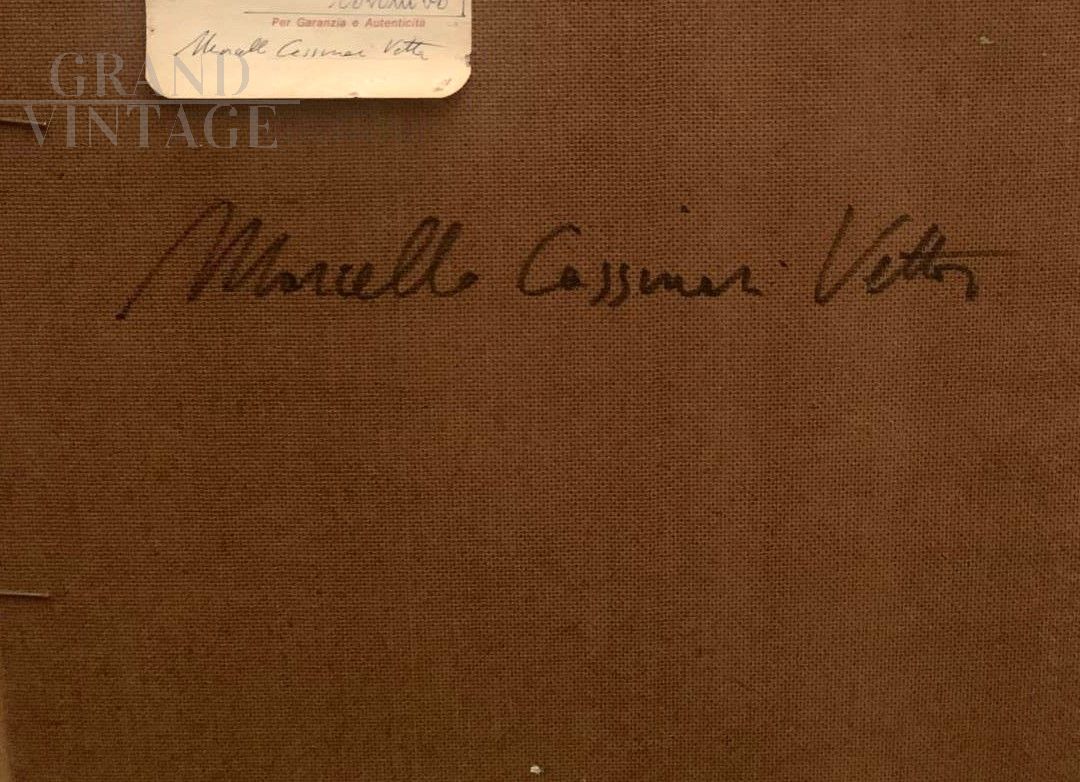 Per Garanzia e Autenticità
Marcello Cassinari Vettor
GRAND
VINTAGE
Marcello Cassinari Vettor